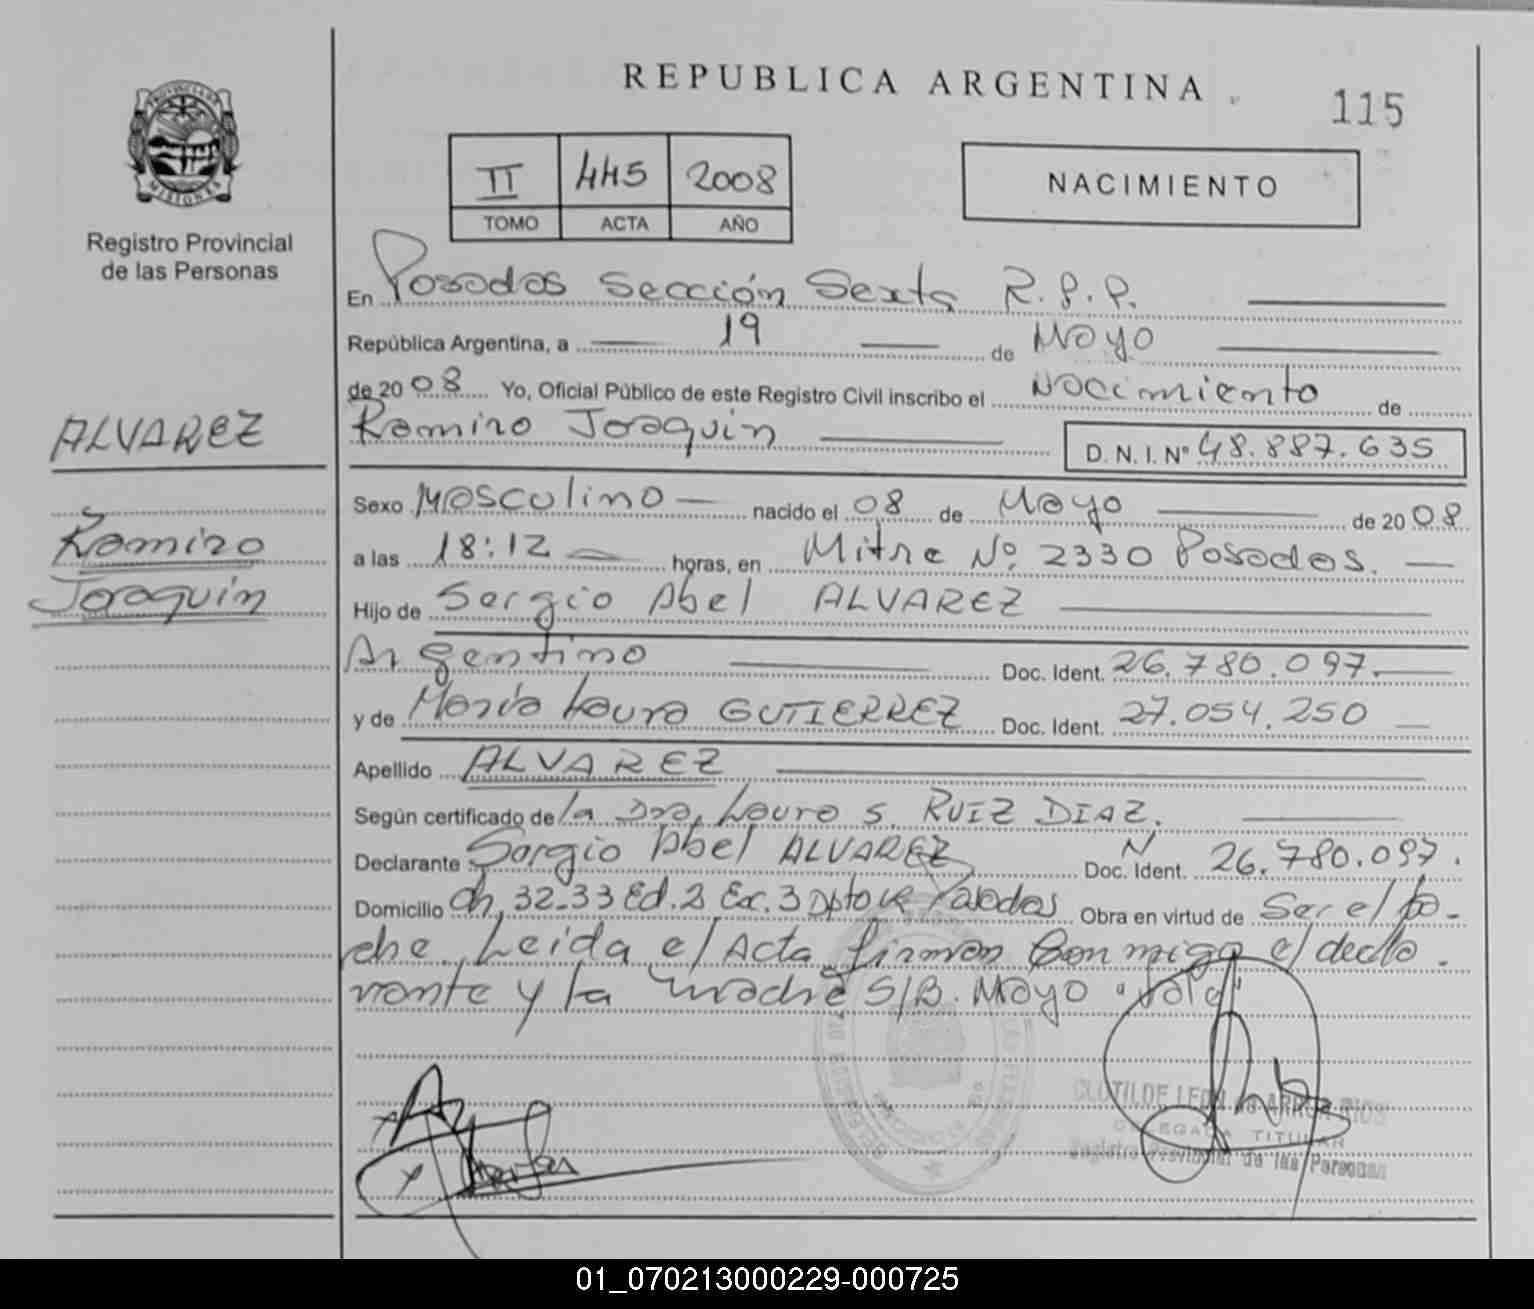 REPUBLICA ARGENTINA
115
PROVINCIA DE MISIONES
Registro Provincial
de las Personas
II 445 2008
TOMO ACTA AÑO
NACIMIENTO
En Posadas Sección Sexta R.P.P.
República Argentina, a 19 de Mayo
de 2008 Yo, Oficial Público de este Registro Civil inscribo el Nacimiento de
Ramiro Joaquín D.N.I. Nº 48.887.635
ALVAREZ
Ramiro
Joaquín
Sexo Masculino nacido el 08 de Mayo de 2008
a las 18:12 horas, en Mitre Nº 2330 Posadas.
Hijo de Sergio Abel ALVAREZ
Argentino Doc. Ident. 26.780.097.
y de María Laura GUTIERREZ Doc. Ident. 27.054.250
Apellido ALVAREZ
Según certificado de la Dra. Laura S. RUIZ DIAZ.
Declarante Sergio Abel ALVAREZ Doc. Ident. 26.780.097.
Domicilio Ch. 32-33 Ed. 2 Esc. 3 Dpto Posadas Obra en virtud de Ser el pa-
dre. Leida el Acta firman Conmigo el decla-
rante y la madre S/B. Mayo "Vale"
CLOTILDE LEON de ARRIOS
DELEGADA TITULAR
Registro Provincial de las Personas
01_070213000229-000725